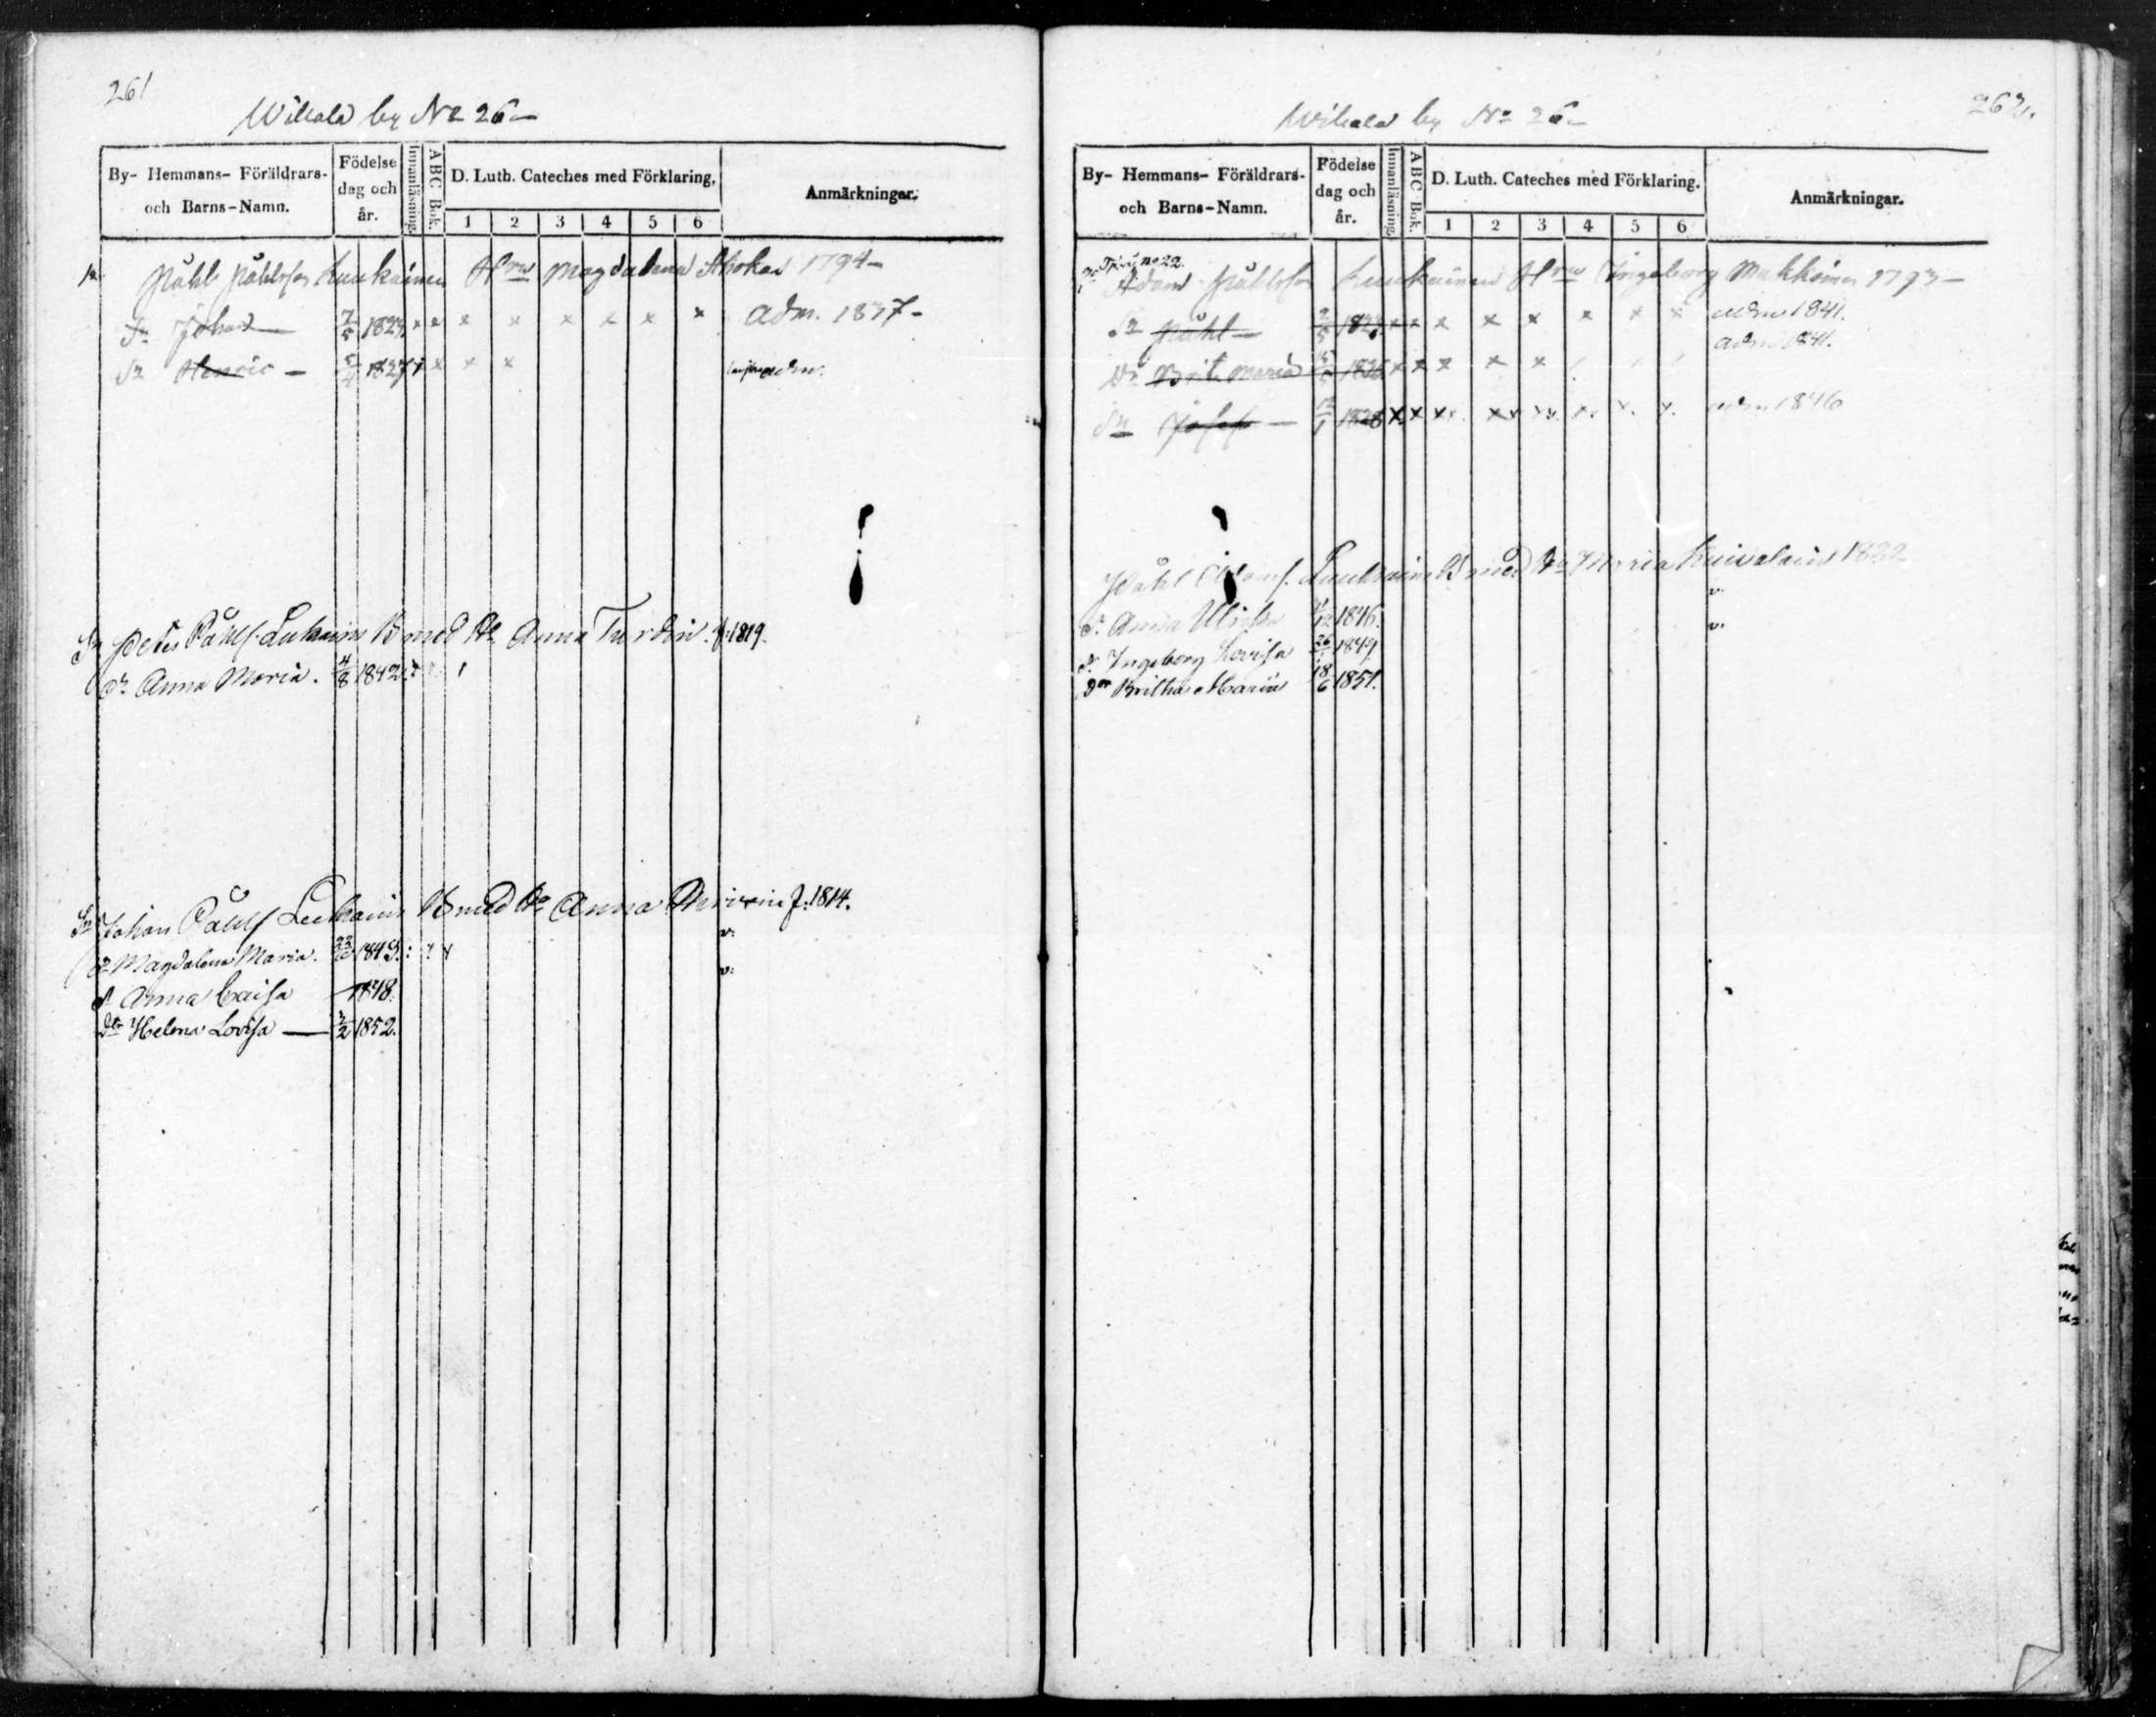 261
Wihala by No 26
By- Hemmans- Föräldrars- och Barns-Namn.
Födelse dag och år.
Innanläsning
ABC Bok.
D. Luth. Cateches med Förklaring.
1 2 3 4 5 6
Anmärkningar.
Påhl Påhlsson Luukainen Hru Magdalena Ahokas 1794
Sn Johan 7/5 1823 x x x x x x x x adm. 1837
Sn Henric 5/4 1827 x x x adm.
Sn Peter Påhls. Lukain B med Ho Anna Turdin f. 1819.
Dr Anna Maria. 4/8 1842
Sn Johan Påhls Luckain B med Ho Anna f. 1814.
Dr Magdalena Maria. 1845
v:
Dr Anna Caisa 1848.
v:
Dtr Helena Lovisa 3/2 1852.
262.
Wihala by No 26
By- Hemmans- Föräldrars- och Barns-Namn.
Födelse dag och år.
Innanläsning
ABC Bok.
D. Luth. Cateches med Förklaring.
1 2 3 4 5 6
Anmärkningar.
no 22.
Adam Påhlsson Luukainen Hru Ingeborg Makkoinen 1793
Sn Påhl 2/5 1823 x x x x x x x x adm 1841.
Dr Brita Maria 1826 x x x x x adm 1841.
Sn Josef 12/1 1828 x x xx. xx xx. x. x. x. adm 1846
Påhl Adams. Luukain B med Ho Maria Kuivalain 1822
Dr Anna Ulrika 1846.
v.
Dr Ingeborg Lovisa 1849
v.
Dr Britha Maria 18/6 1851.